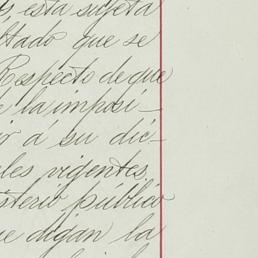 , esta sujeta
ltado que se
Respecto de que
la imposi-
o á su dic-
les vigentes,
sterio público
ue digan la